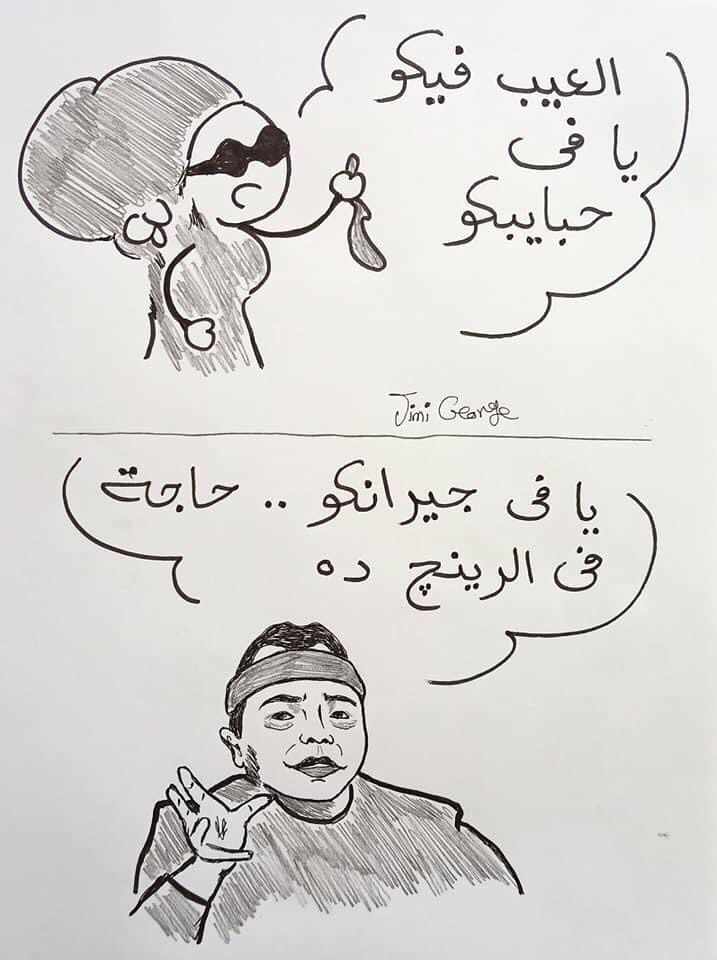 العيب فيكو
يا فى
حبايبكو
Jimi George
يا فى جيرانكو .. حاجة
فى الرينچ ده